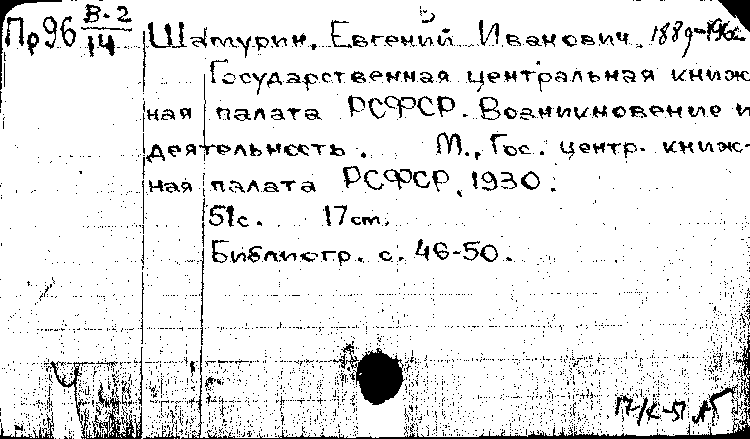 Пр96 В-2/14
Шамурин, Евгений Иванович, 1889-1962
Государственная центральная книж
ная палата РСФСР. Возникновение и
деятельность. М., Гос. центр. книж-
ная палата РСФСР, 1930.
51с. 17cm.
Библиогр. с. 46-50.